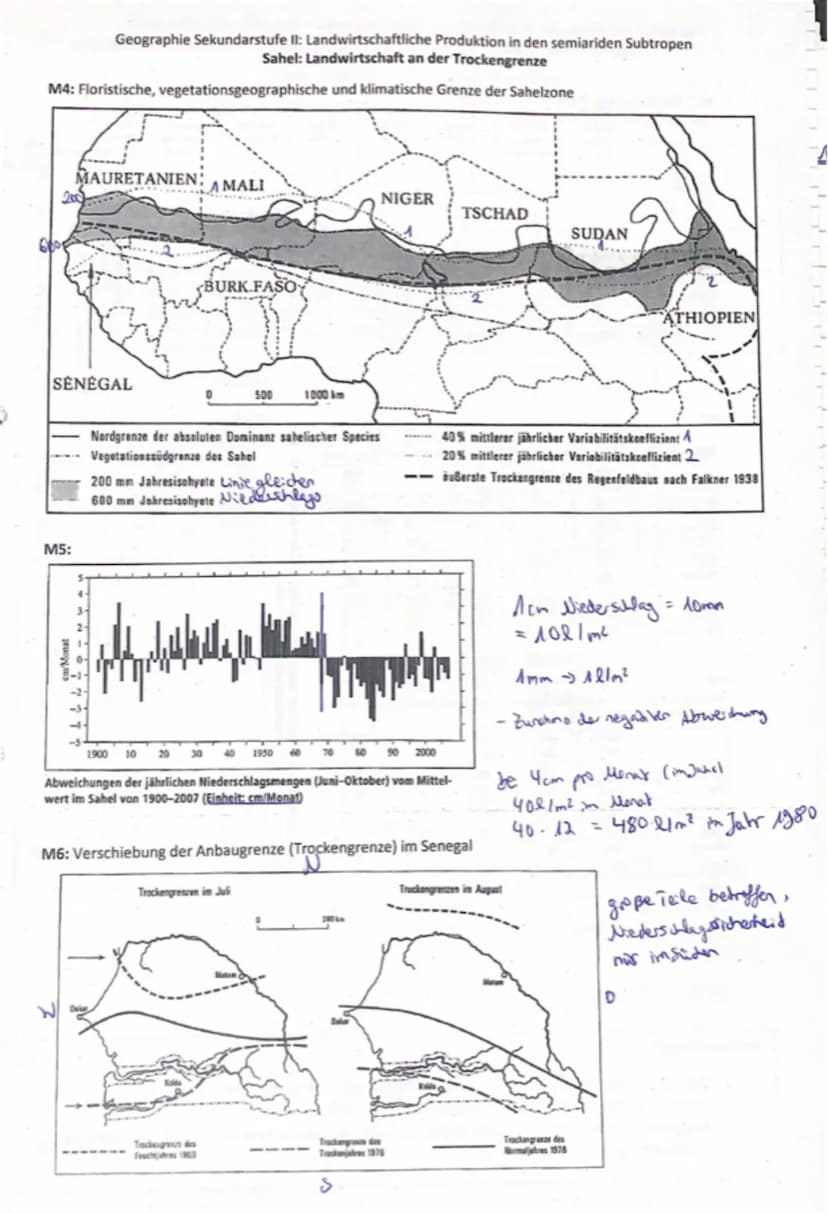 Geographie Sekundarstufe II: Landwirtschaftliche Produktion in den semiariden Subtropen
Sahel: Landwirtschaft an der Trockengrenze
M4: Floristische, vegetationsgeographische und klimatische Grenze der Sahelzone
MAURETANIEN 1 MALI
200
NIGER
1
TSCHAD
SUDAN
1
600
2
2
2
BURK.FASO
ÄTHIOPIEN
SÉNÉGAL
0 500 1000 km
Nordgrenze der absoluten Dominanz sahelischer Species
Vegetationssüdgrenze des Sahel
200 mm Jahresisohyete Linie gleichen
600 mm Jahresisohyete Niederschlags
40% mittlerer jährlicher Variabilitätskoeffizient 1
20% mittlerer jährlicher Variabilitätskoeffizient 2
äußerste Trockengrenze des Regenfeldbaus nach Falkner 1938
M5:
5
4
3
2
1
0
-1
-2
-3
-4
-5
cm/Monat
1900 10 20 30 40 1950 60 70 80 90 2000
Abweichungen der jährlichen Niederschlagsmengen (Juni-Oktober) vom Mittel-
wert im Sahel von 1900–2007 (Einheit: cm/Monat)
1cm Niederschlag = 10mm
= 10 l/m²
1mm → 1l/m²
- Zunahme der negativen Abweichung
be 4cm pro Monat (im Jahr)
40 l/m² in Monat
40 · 12 = 480 l/m² im Jahr 1980
M6: Verschiebung der Anbaugrenze (Trockengrenze) im Senegal
N
Trockengrenzen im Juli
Trockengrenzen im August
0 200 km
Matam
Dakar
Kolda
Matam
Dakar
Kolda
W
O
S
große Teile betroffen,
Niederschlagssicherheid
nur im Süden
Trockengrenze des
Feuchtjahres
Trockengrenze des
Trockenjahres
Trockengrenze des
Normaljahres 1978